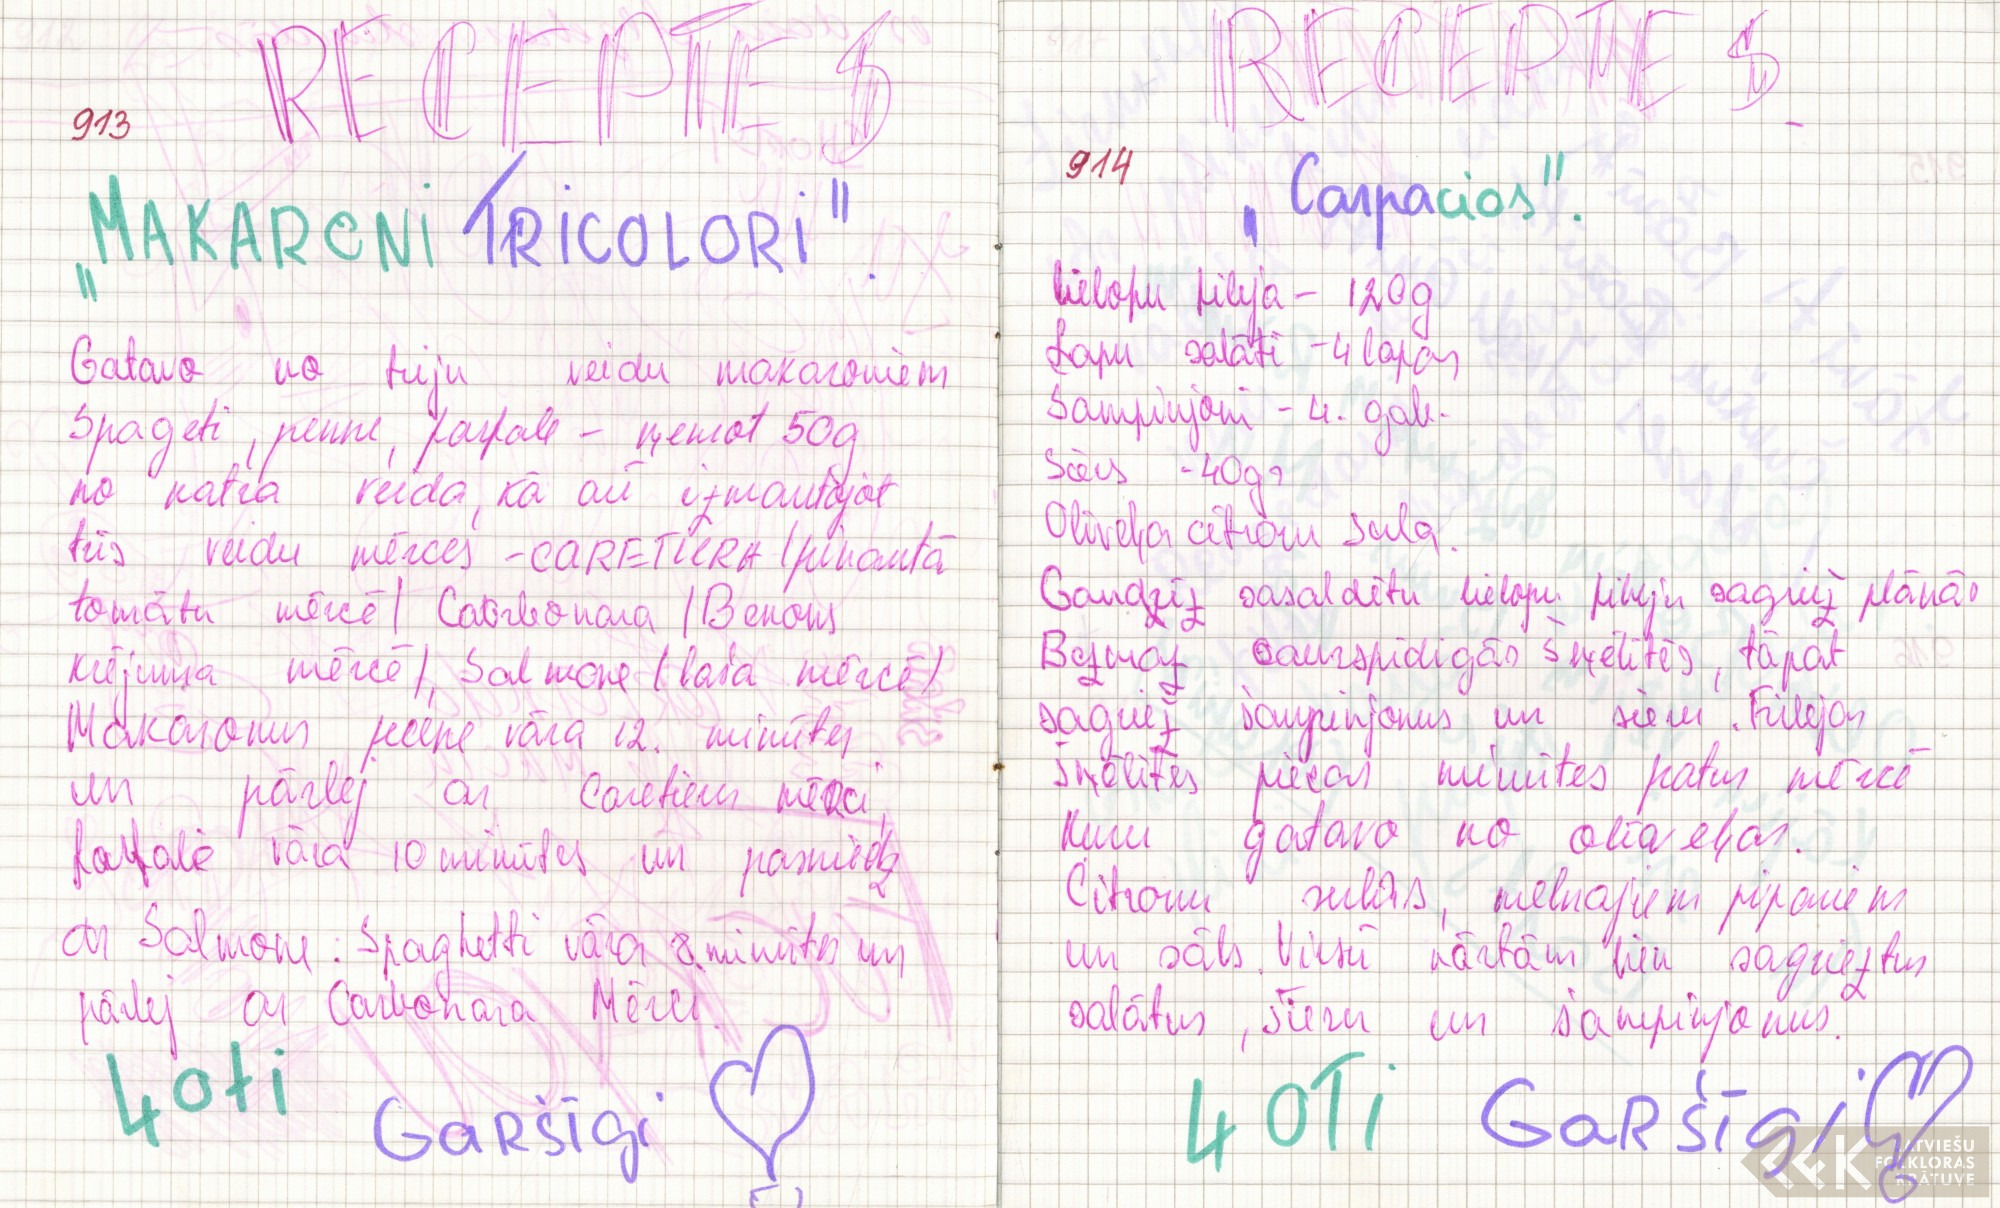 RECEPTES
913
„MAKARONI TRICOLORI".
Gatavo no triju veidu makaroniem
Spageti, penne, farfale – ņemot 50g
no katra veida, kā arī izmantojot
trīs veidu mērces - CARETIERA /pikantā
tomātu mērcē/ Carbonara /
krējuma mērcē/, Salmone /laša mērcē/
Makaronus penne vāra 12. minūtes
un pārlej ar Caretiera mērci,
farfale vāra 10 minūtes un pasniedz
ar Salmone. Spaghetti vāra 8. minūtes un
pārlej ar Carbonara Mērci.
Ļoti
GARŠĪGI
RECEPTES.
914
„Carpacios".
Liellopu fileja – 120g
Lapu salāti – 4 lapas
Šampinjoni – 4. gab.
Siers - 40gr
Olīveļļa citronu sula.
Gandrīz sasaldētu liellopu fileju sagriež plānās
Bezmaz caurspīdīgās šķēlītēs, tāpat
sagriež šampinjonus un sieru. Filejas
šķēlītes piecas minūtes patur mērcē
Kuru gatavo no olīveļļas.
Citronu sulas, melnajiem pipariem
un sāls. Virsū kārtām liek sagrieztus
salātus, sieru un šampinjonus.
ĻOTI GARŠĪGI
LFK LATVIEŠU
FOLKLORAS
KRĀTUVE